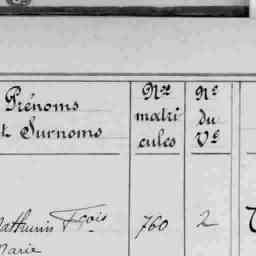 Prénoms
& Surnoms
Nos
matri
cules
No
du
Vo
Mathurin Fçois
Marie
760
2